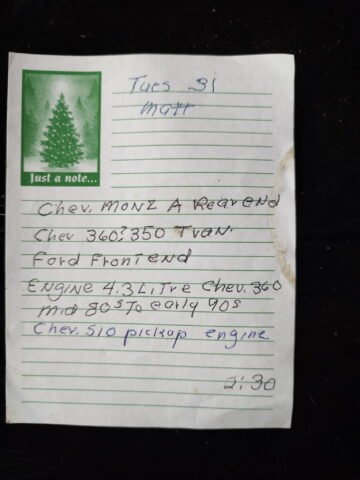 Tues 31
Matt
Just a note...
Chev. MONZ A Rearend
Chev 360? 350 Tran.
Ford Frontend
ENgiNe 4.3 Litre Chev. 360
mid 80s To early 90s
Chev. S10 pickup engine
2:30